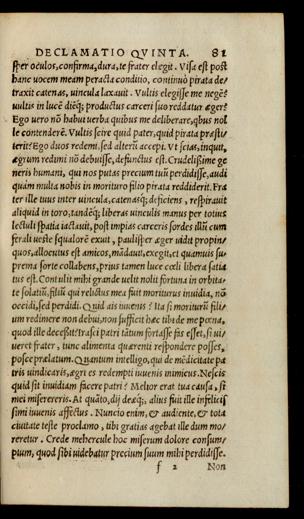 DECLAMATIO QVINTA. 81
ſper oculos, confirma, dura, te frater elegit. Viſa eſt poſt
hanc vocem meam peracta conditio, continuò pirata de⸗
traxit catenas, vincula laxauit. Vultis elegiſſe me negẽ?
vultis in lucẽ diẽq; productus carceri ſuo reddatur æger?
Ego vero nõ habui verba quibus me deliberare, qbus nol
le contenderẽ. Vultis ſcire quid pater, quid pirata præſti⸗
terit? Ego duos redemi, ſed alterũ accepi. Vt ſcias, inquit,
ægrum redimi nõ debuiſſe, defunctus eſt. Crudeliſſime ge
neris humani, qui nos putas precium tuũ perdidiſſe, audi
quàm multa nobis in morituro filio pirata reddiderit. Fra
ter ille tuus inter vincula, catenasq; deficiens, reſpirauit
aliquid in toro, tandẽq; liberas vinculis manus per totius
lectuli ſpatia iactauit, poſt impias carceris ſordes illũ cum
ferali veſte ſqualorẽ exuit, pauliſper æger vidit propin⸗
quos, alloquutus eſt amicos, mãdauit, exegit, et quamuis ſu⸗
prema ſorte collabens, prius tamen luce cœli libera ſatia
tus eſt. Contulit mihi grande velit nolit fortuna in orbita⸗
te ſolatiũ, filiũ qui relictus mea fuit moriturus inuidia, nõ
occidi, ſed perdidi. Quid ais iuuenis? Ita ſi moriturũ fili⸗
um redimere non debui, non ſufficit hæc tibi de me pœna,
quod ille deceſsit? Iraſci patri tãtum fortaſſe fas eſſet, ſi vi⸗
ueret frater, tunc alimenta quærenti reſpondere poſſes,
poſce prælatum. Quantum intelligo, qui de mẽdicitate pa
tris vindicaris, ægri es redempti iuuenis inimicus. Neſcis
quid ſit inuidiam facere patri? Melior erat tua cauſa, ſi
mei miſerereris. At quãto, dij deæq;, alius fuit ille infelicis
ſimi iuuenis affectus. Nuncio enim, & audiente, & tota
ciuitate teſte proclamo, tibi gratias agebat ille dum mo⸗
reretur. Crede mehercule hoc miſerum dolore conſum⸗
ptum, quod ſibi videbatur precium ſuum mihi perdidiſſe.
f 2 Non